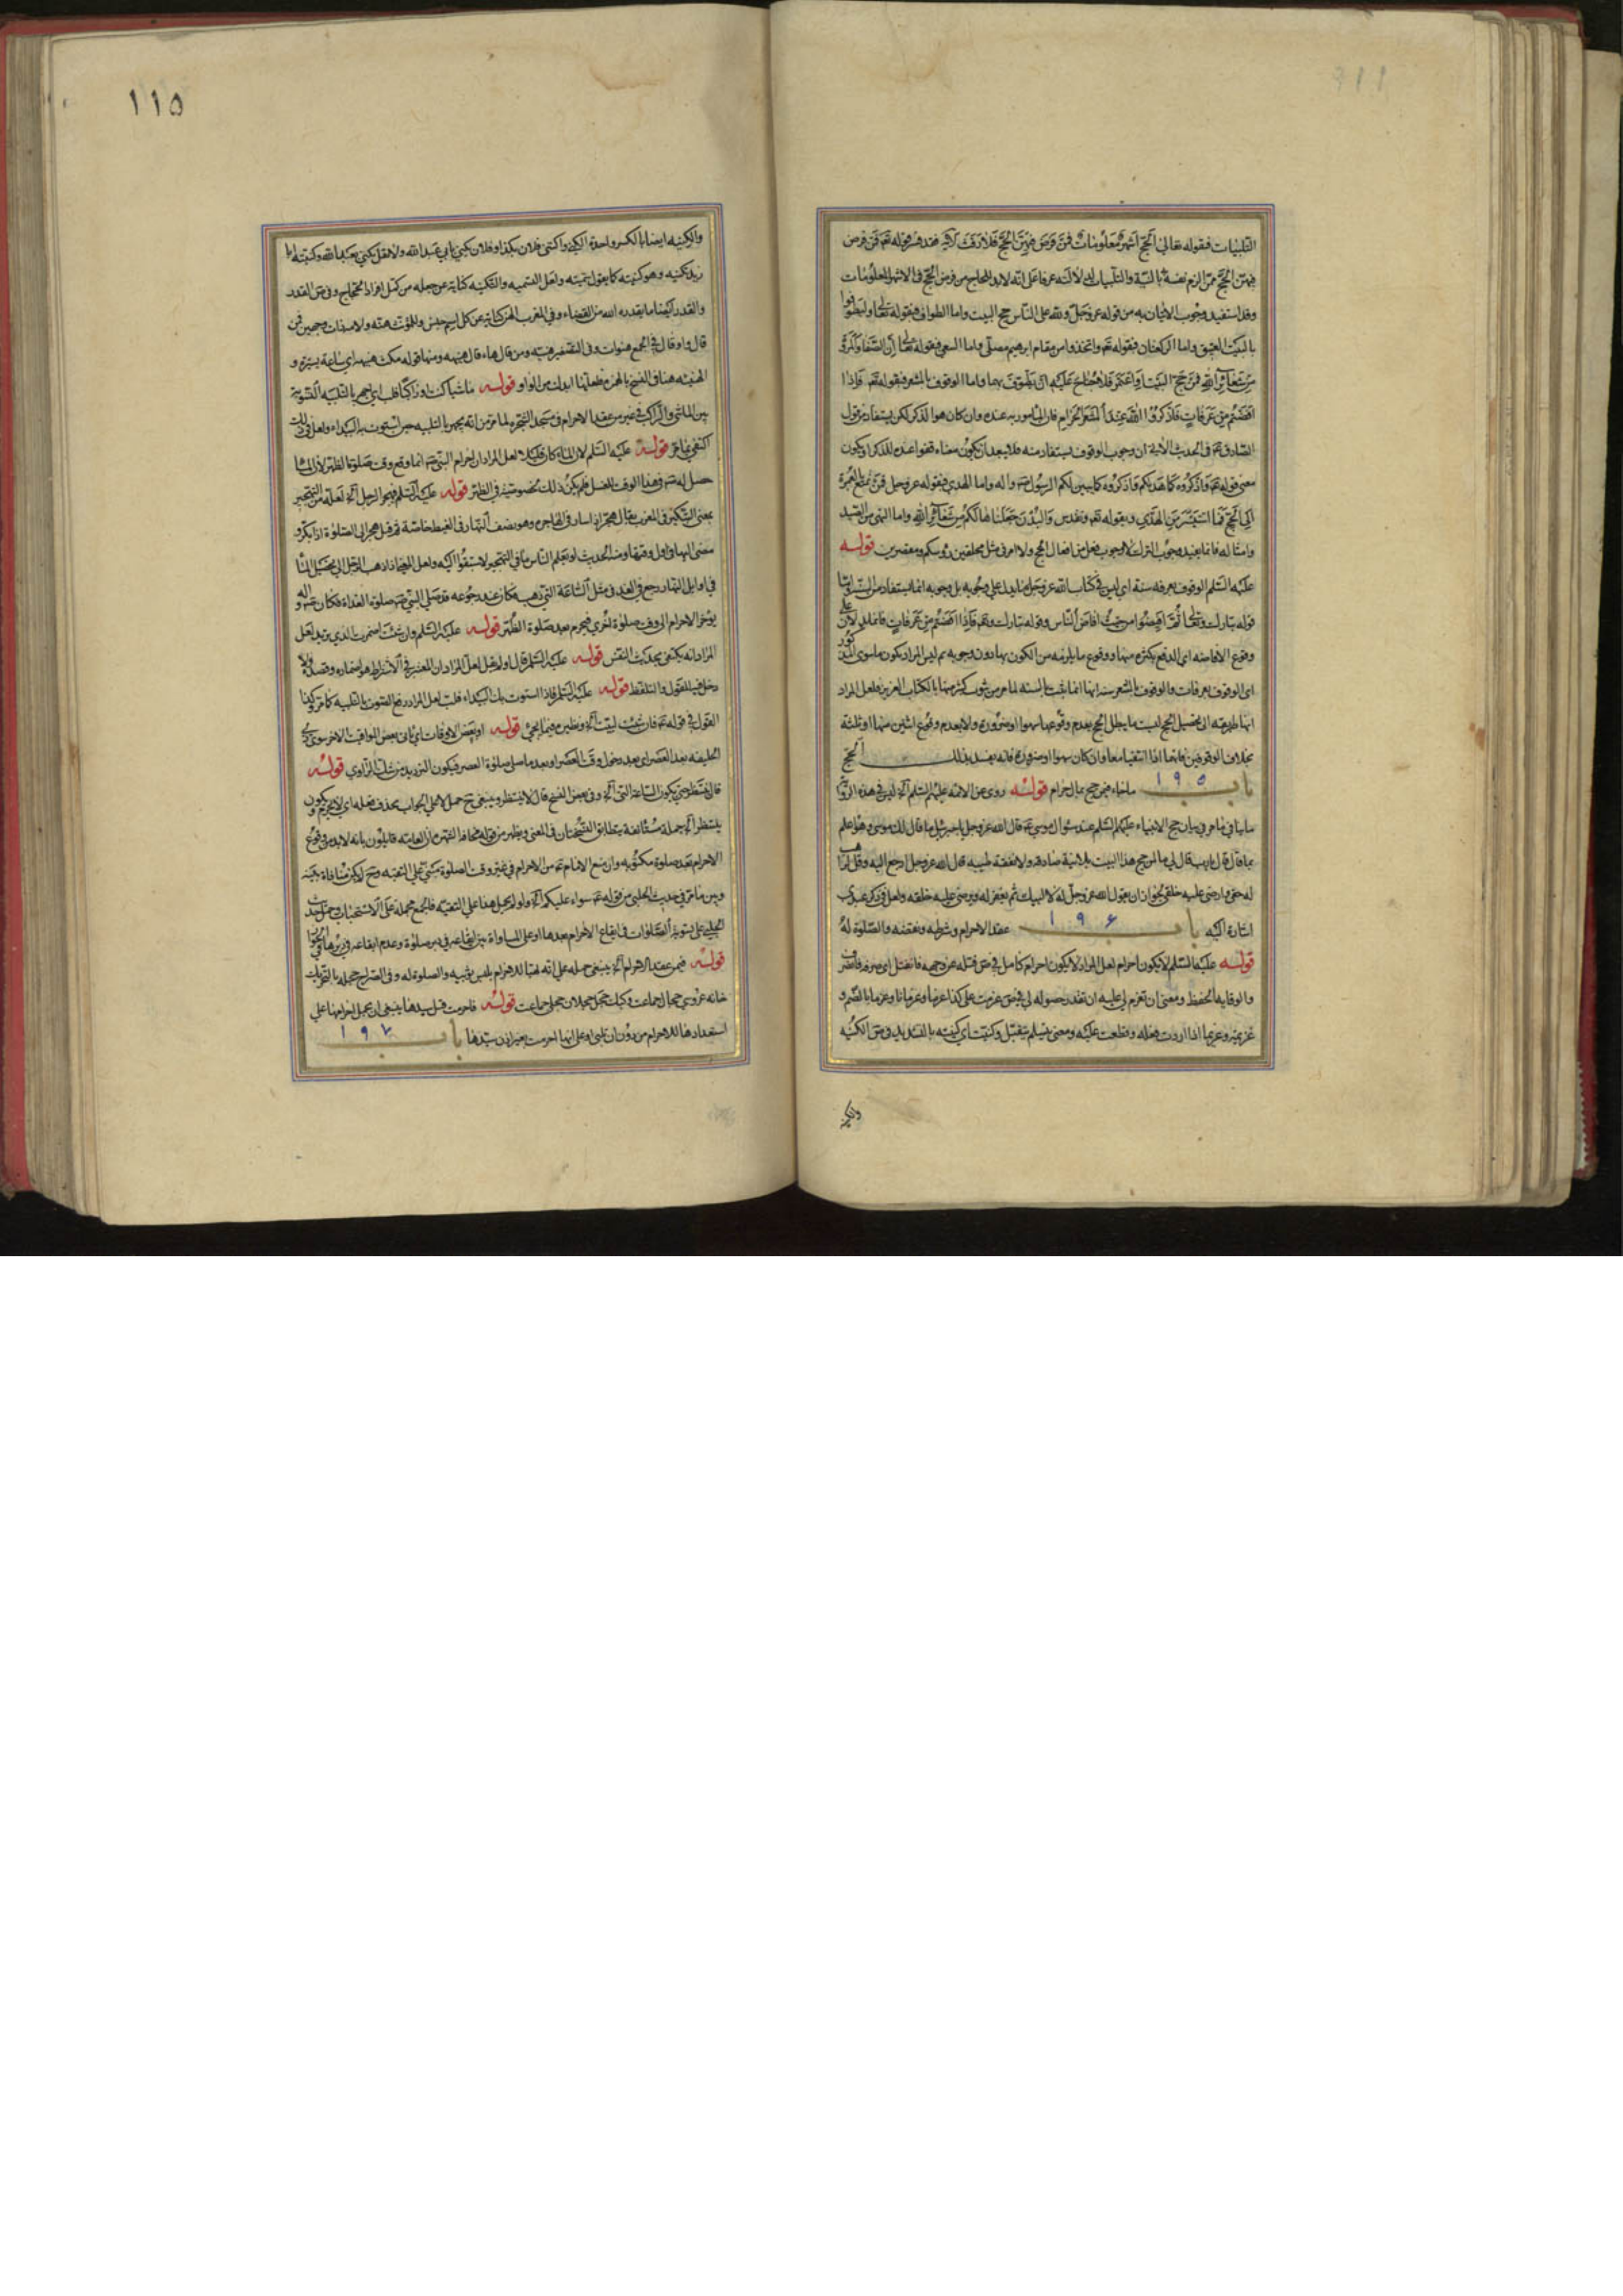 التلبيات فقوله تعالى الحج اشهر معلومات فمن فرض فيهن الحج فلا رفث الآية فقوله تعم فمن فرض
فيهن الحج فمن الزم نفسه بالنية والتلبيات
وقد استفيد وجوب الاتيان به من قوله عز وجل ولله على الناس حج البيت واما الطواف فبقوله تعالى وليطوفوا
بالبيت العتيق واما الركعتان فبقوله تعم واتخذوا من مقام ابرهيم مصلى واما السعي فبقوله تعالى ان الصفا والمروة
من شعائر الله فمن حج البيت او اعتمر فلا جناح عليه ان يطوف بهما واما الوقوف بالمشعر فبقوله تعم فاذا
افضتم من عرفات فاذكروا الله عند المشعر الحرام فان المأمور به عنده وان كان هو الذكر لكن يستفاد من قول
الصادق ع في الحديث الآتية ان وجوب الوقوف يستفاد منه فلا يبعد ان يكون معناه قفوا عنده للذكر او يكون
معنى قوله تعم واذكروه كما هديكم فاذكروه كما يبين لكم الرسول ص واله واما الهدي فبقوله عز وجل فمن تمتع بالعمرة
الى الحج فما استيسر من الهدي وبقوله تعم وتقدس والبدن جعلناها لكم من شعائر الله واما النهي من الصيد
وامثاله فانما يفيد وجوب الترك لا وجوب فعل من افعال الحج ولا امر في مثل محلقين رؤسكم ومقصرين قوله
عليه السلم الوقوف بعرفة سنة اي ليس في كتاب الله عز وجل ما يدل على وجوبه بل وجوبه انما يستفاد من السنة واما
قوله تبارك وتعالى ثم افيضوا من حيث افاض الناس وقوله تبارك وتعم فاذا افضتم من عرفات فانما يدل على ان
وقوع الافاضة اي الدفع بكثرة منها ووقوع ما يلزمه من الكون بها دون وجوبه ثم ليس المراد بكون ما سوى المذكور
اي الوقوف بعرفات والوقوف بالمشعر سنة انها انما يثبت بالسنة لما مر من ثبوت كثير منها بالكتاب العزيز فلعل المراد
انها طريقة الى تحصيل الحج ليست ما يبطل الحج بعدم وقوعها سهوا او ضرورة ولا بعدم وقوع اثنين منها او ثلثة
بخلاف الوقوفين فانهما اذا انتفيا معا وان كان سهوا او ضرورة فانه يفسد بذلك الحج
باب ١٩٥ ما جاء فيمن حج بمال حرام قوله روى عن الائمة عليهم السلم آه ليس في هذه الرواية
ما ينافي ما مر في بيان حج الانبياء عليهم السلم عند سؤال موسى ع قال الله عز وجل يا جبرئيل ما قال لك موسى وهو اعلم
بما قال قال يا رب قال لي ما لمن حج هذا البيت بلا نية صادقة ولا نفقة طيبة قال الله عز وجل ارجع اليه وقل له اهب
له حقي وارضي عليه خلقي لجواز ان يقول الله عز وجل له لا لبيك ثم يغفر له
اشارة اليه باب ١٩٦ عقد الاحرام وشرطه ونقضه والصلوة له
قوله عليه السلم لا يكون احرام لعل المراد لا يكون احرام كامل
والوقاية الحفظ ومعنى ان تعزم لي عليه ان تقدر حصوله لي
عزيمة وعزيما اذا اردت فعله وقطعت عليه ومعنى
والكنية
١١٥
والكنية ايضا بالكسر واحدة الكنى واكتنى فلان بكذا وفلان يكنى بابي عبد الله ولا تقل يكنى بعبد الله وكنيته ابا
زيد تكنية وهو كنيته كما يقول سميته ولعل التسمية والتكنية كناية عن جعله من كمل افراد الحجاج وفي ص القدر
والقدر ايضا ما يقدره الله من القضاء وفي المغرب الهن كناية عن كل اسم جنس وللمؤنث هنة
قال واو قال في الجمع هنوات وفي التصغير هنية ومن قال هاء قال هنيهة ومنها قوله مكث هنيهة اي ساعة يسيرة و
قوله ماشيا كنت او راكبا
بين الماشي والراكب في غير من عقد الاحرام في مسجد الشجرة لما مر من انه يجهر بالتلبية حين استوت به البيداء ولعل في ذلك
اكتفي بما مر قوله عليه السلم لان الماء كان قليلا لعل المراد ان احرام النبي ص انما وقع وقت صلوة الظهر لان الماء
حصل له ص في هذا الوقت للغسل فلم يكن ذلك لخصوصية في الظهر قوله عليه السلم فيهجر الرجل آه لعله من التهجير
بمعنى التبكير في المغرب يقال هجر اذا سار في الهاجرة وهو نصف النهار في القيظ خاصة ثم قيل هجر الى الصلوة اذا بكر و
مضى اليها في اول وقتها ومنه الحديث لو يعلم الناس ما في التهجير لاستبقوا اليه ولعل المعنى اذا ذهب الرجل الى تحصيل الماء
في اوايل النهار رجع في الغد في مثل الساعة التي ذهب فكان عند رجوعه قد صلى النبي ص صلوة الغداة فكان ص واله
يؤخر الاحرام الى وقت صلوة اخرى فيحرم بعد صلوة الظهر قوله عليه السلم وان شئت اضمرت الذي تريد لعل
المراد انه يكتفي بحديث النفس قوله عليه السلم قال او لم يقل لعل المراد ان المعتبر في الاشتراط هو اضماره وقصده ولا
دخل فيه للقول والتلفظ قوله عليه السلم فاذا استوت بك البيداء فلب لعل المراد رفع الصوت بالتلبية كما مر وكذا
القول في قوله ع فان شئت لبيت آه قوله او بعض الاوقات اي
الحليفة بعد العصر اي بعد دخول وقت العصر او بعد ما صلى صلوة العصر فيكون الترديد من شك الراوي قوله
قال تنتظر حتى يكون الساعة التي آه وفي بعض النسخ قال لا ينتظر وينبغي
ينتظر آه جملة مستأنفة يتطابق النسختان في المعنى
الاحرام بعد صلوة مكتوبة وان منع الامام ع من الاحرام في غير وقت الصلوة مبني على التقية وح لا يكن منافاة بينه
وبين ما مر في حديث الحلبي من قوله ع سواء عليكم آه ولو لم يحمل هذا على التقية فالجمع بحمله على الاستحباب وحمل حديث
الحلبي على تسوية الصلوات في ايقاع الاحرام بعدها او على المساواة بين ايقاعه في دبر صلوة وعدم ايقاعه في دبرها في الجواز
قوله فيمن عقد الاحرام آه ينبغي حمله على انه تهيأ للاحرام بلبس ثوبيه والصلوة له وفي الصراح حجله بالتحريك
خانه عروس حجال جماعت قوله فاحرمت قبل سيدها ينبغي ان يحمل احرامها على
استعدادها للاحرام من دون ان تلبي او على انها احرمت بغير اذن سيدها باب ١٩٧